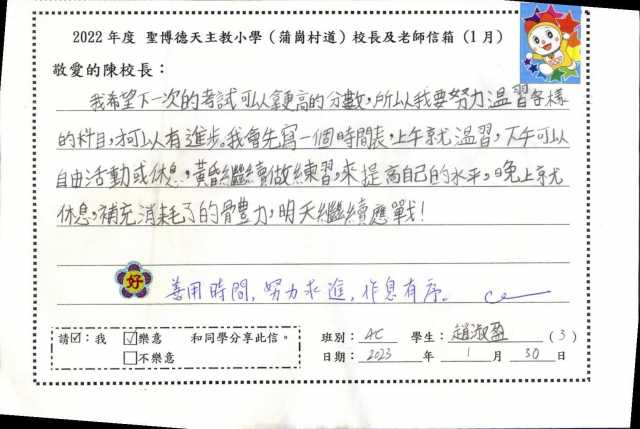 2022 年度 聖博德天主教小學（蒲崗村道）校長及老師信箱（1月）
敬愛的陳校長：
我希望下一次的考試可以拿更高的分數，所以我要努力溫習各樣
的科目，才可以有進步。我會先寫一個時間表，上午就溫習，下午可以
自由活動或休息，黃昏繼續做練習，來提高自己的水平，晚上就
休息，補充消耗了的體力，明天繼續應戰！
好 善用時間，努力求進，作息有序。
請☑：我 ☑樂意 和同學分享此信。
□不樂意
班別： 4C 學生：趙淑盈（3）
日期： 2023 年 1 月 30 日